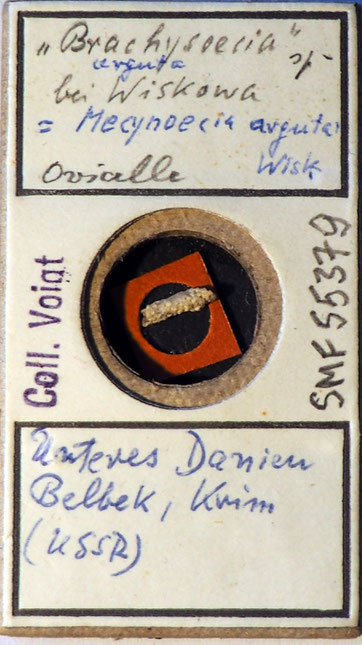 „Brachysoecia" sp.
arguta
bei Wiskowa
= Mecynoecia arguta
Wisk
Ovizelle
Coll. Voigt
SMF 55379
Unteres Danien
Belbek, Krim
(USSR)